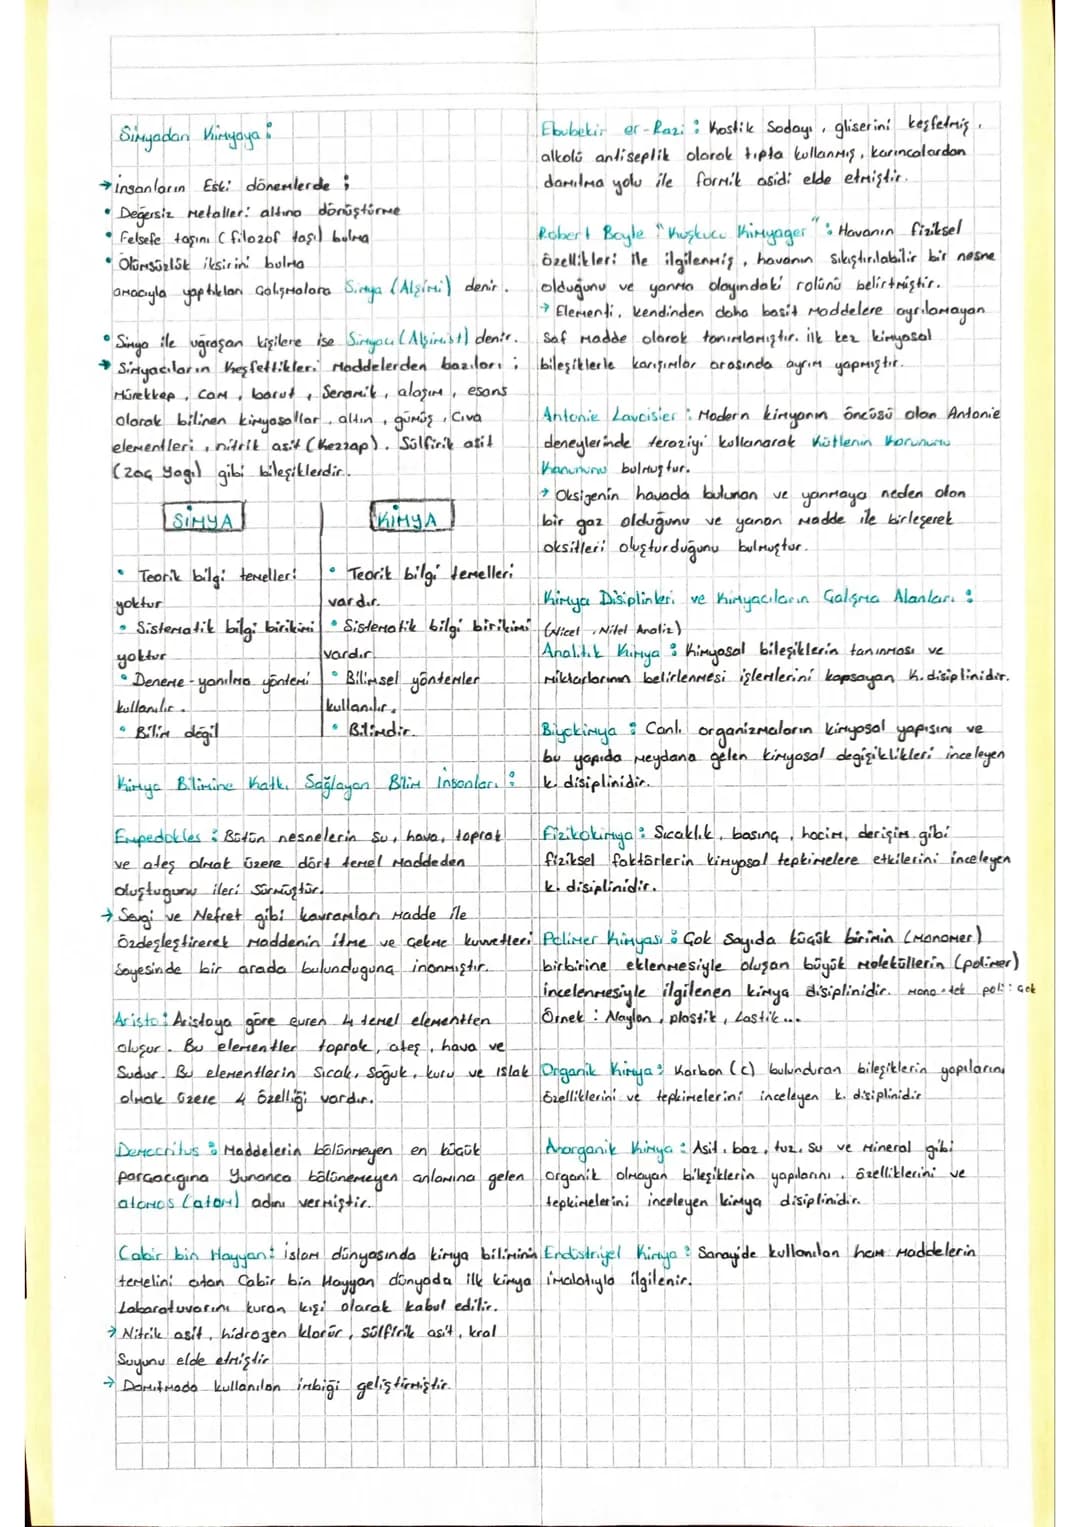 Simyadan Kimyaya :
→ İnsanların Eski dönemlerde ;
• Değersiz metalleri altına dönüştürme
• Felsefe taşını (filozof taşı) bulma
• Ölümsüzlük iksirini bulma
amacıyla yaptıkları çalışmalara Simya (Alşimi) denir.
• Simya ile uğraşan kişilere ise Simyacı (Alşimist) denir.
→ Simyacıların keşfettikleri maddelerden bazıları ;
Mürekkep, cam, barut, Seramik, alaşım, esans
olarak bilinen kimyasallar, altın, gümüş, Civa
elementleri, nitrik asit (kezzap). Sülfirik asit
(zaç yağı) gibi bileşiklerdir.
SİMYA
KİMYA
• Teorik bilgi temelleri
yoktur
• Sistematik bilgi birikimi
yoktur
• Deneme-yanılma yöntemi
kullanılır.
• Bilim değil
• Teorik bilgi temelleri
vardır.
• Sistematik bilgi birikimi
vardır
• Bilimsel yöntemler
kullanılır.
• Bilimdir.
Kimya Bilimine Katkı Sağlayan Bilim İnsanları :
Empedokles : Bütün nesnelerin su, hava, toprak
ve ateş olmak üzere dört temel maddeden
oluştugunu ileri sürmüştür.
→ Sevgi ve Nefret gibi kavramları madde ile
Özdeşleştirerek maddenin itme ve çekme kuvvetleri
Sayesinde bir arada bulunduguna inanmıştır.
Aristo : Aristoya göre evren 4 temel elementten
oluşur. Bu elementler toprak, ateş, hava ve
Sudur. Bu elementlerin Sıcak, Soğuk, kuru ve ıslak
olmak üzere 4 özelliği vardır.
Democritus : Maddelerin bölünmeyen en küçük
parçacıgına Yunanca bölünemeyen anlamına gelen
atomos (atom) adını vermiştir.
Cabir bin Hayyan : İslam dünyasında kimya biliminin
temelini atan Cabir bin Hayyan dünyada ilk kimya
Labaratuvarını kuran kişi olarak kabul edilir.
→ Nitrik asit, hidrojen klorür, sülfirik asit, kral
Suyunu elde etmiştir
→ Damıtmada kullanılan imbiği geliştirmiştir.
Ebubekir er-Razi : Kostik Sodayı, gliserini keşfetmiş,
alkolü antiseptik olarak tıpta kullanmış, karıncalardan
damıtma yolu ile formik asidi elde etmiştir.
Robert Boyle "Kuşkucu Kimyager" : Havanın fiziksel
özellikleri ile ilgilenmiş, havanın sıkıştırılabilir bir nesne
olduğunu ve yanma olayındaki rolünü belirtmiştir.
→ Elementi, kendinden daha basit maddelere ayrılamayan
Saf madde olarak tanımlamıştır. İlk kez kimyasal
bileşiklerle karışımlar arasında ayrım yapmıştır.
Antonie Lavoisier : Modern kimyanın öncüsü olan Antonie
deneylerinde teraziyi kullanarak Kütlenin Korunumu
Kanununu bulmuştur.
→ Oksigenin havada bulunan ve yanmaya neden olan
bir gaz olduğunu ve yanan madde ile birleşerek
oksitleri oluşturduğunu bulmuştur.
Kimya Disiplinleri ve Kimyacıların Çalışma Alanları :
(Nicel, Nitel Analiz)
Analitik Kimya : Kimyasal bileşiklerin tanınması ve
miktarlarının belirlenmesi işlemlerini kapsayan K. disiplinidir.
Biyokimya : Canlı organizmaların kimyasal yapısını ve
bu yapıda meydana gelen kimyasal degişiklikleri inceleyen
k. disiplinidir.
Fizikokimya : Sıcaklık, basınç, hacim, derişim gibi
fiziksel faktörlerin kimyasal tepkimelere etkilerini inceleyen
k. disiplinidir.
Polimer Kimyası : Çok Sayıda küçük birimin (monomer)
birbirine eklenmesiyle oluşan büyük moleküllerin (polimer)
incelenmesiyle ilgilenen kimya disiplinidir. Mono : tek poli : çok
Örnek : Naylon, plastik, Lastik...
Organik Kimya : Karbon (c) bulunduran bileşiklerin yapılarını
özelliklerini ve tepkimelerini inceleyen k. disiplinidir
Anorganik Kimya : Asit, baz, tuz, su ve Mineral gibi
organik olmayan bileşiklerin yapılarını, özelliklerini ve
tepkimelerini inceleyen kimya disiplinidir.
Endüstriyel Kimya : Sanayide kullanılan ham maddelerin
imalatıyla ilgilenir.